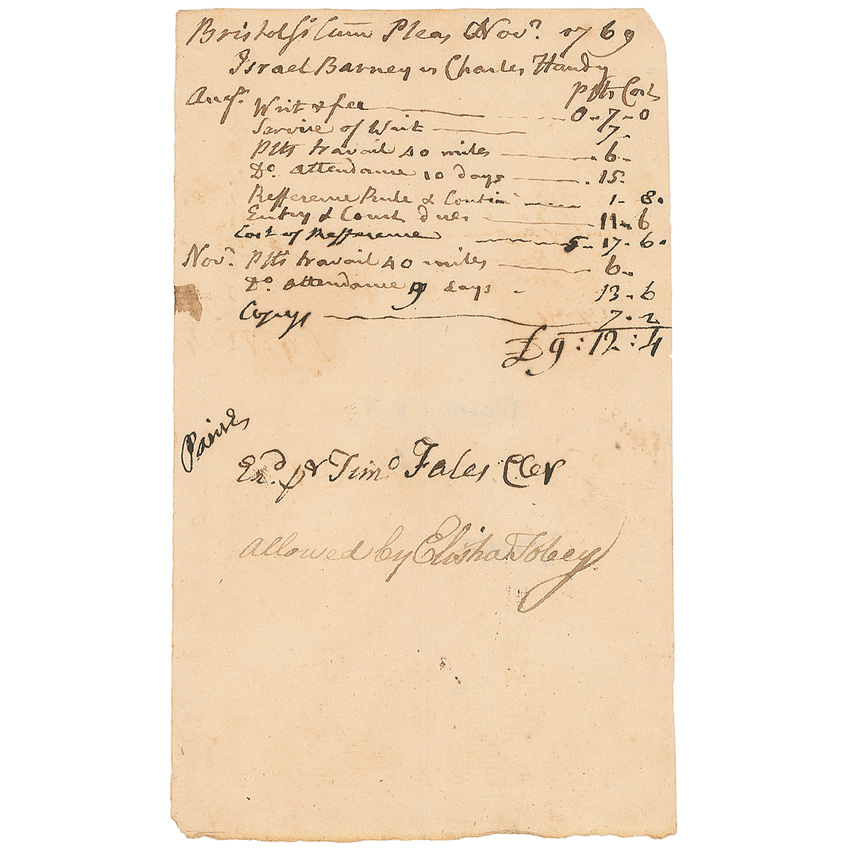 Bristol Ss Com Pleas Novr. 1769
Israel Barney vs Charles Handy
Plts Cost
Augt. Writ & fee 0-7-0
Service of Writ 17-
Plts travail 40 miles 6-
Do. attendance 10 days 15-
Refference Rule & Contin 1-8-
Entry & Court dues 11-6
Cost of Refference 5-17-6-
Novr. Plts travail 40 miles 6-
Do attendance 9 days 13-6
Copys 7-2
£9:12:4
Paine
Exd. pr Timo Fales Cler
allowed by Elisha Tobey